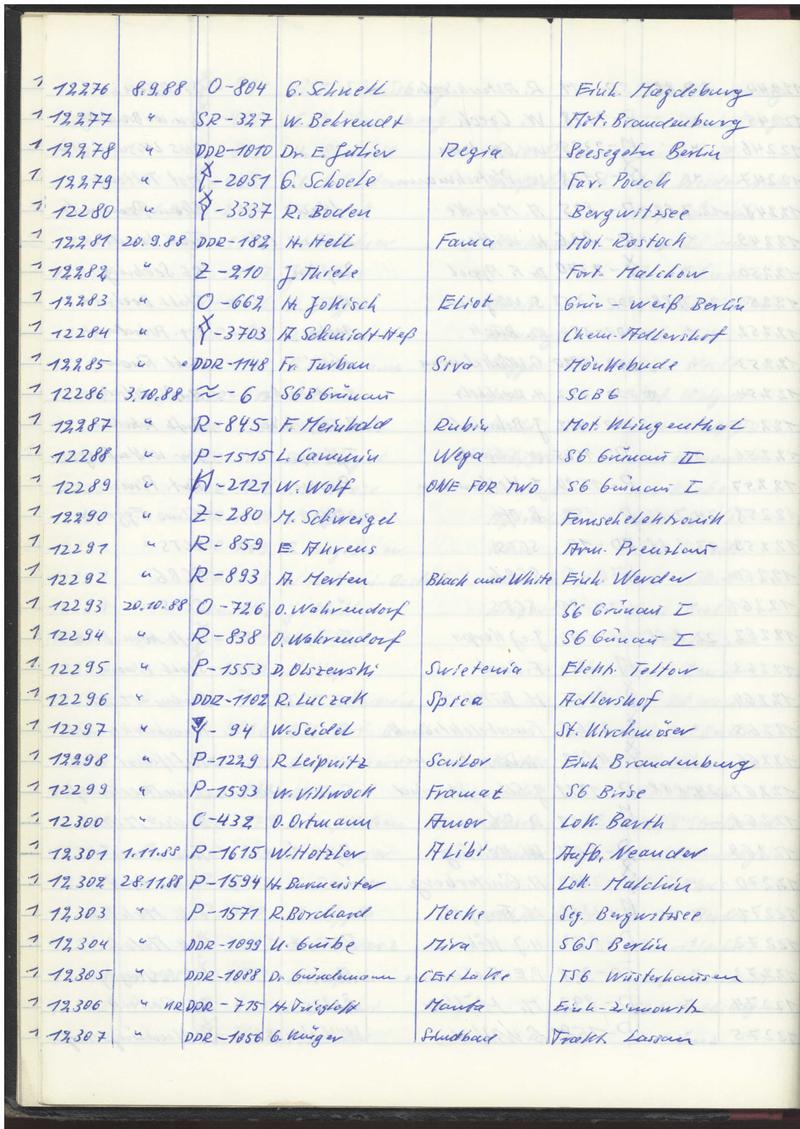 1 12276 8.9.88 O-804 G. Schnell Einh. Magdeburg
1 12277 " SR-327 W. Behrendt Mot. Brandenburg
1 12278 " DDR-1010 Dr. E. Regia Seesegeln Berlin
1 12279 " Y-2051 G. Schoele Fav. Pouch
1 12280 " Y-3337 R. Boden Bergwitzsee
1 12281 20.9.88 DDR-182 H. Hell Fama Mot. Rostock
1 12282 " Z-210 J. Thiele Fort. Malchow
1 12283 " O-662 H. Jokisch Eliot Grün-Weiß Berlin
1 12284 " Y-3703 A. Schmidt-Heß Chem. Adlershof
1 12285 " DDR-1148 Fr. Turban Siva Mönkebude
1 12286 3.10.88 ≈-6 SGB Grünau SCBG
1 12287 " R-845 F. Meinhold Rubin Mot. Klingenthal
1 12288 " P-1515 L. Cammin Wega SG Grünau II
1 12289 " H-2121 W. Wolf ONE FOR TWO SG Grünau I
1 12290 " Z-280 M. Schweigel Fernsehelektronik
1 12291 " R-859 E. Ahrens Arm. Prenzlau
1 12292 " R-893 A. Merten Black and White Einh. Werder
1 12293 20.10.88 O-726 O. Wahrendorf SG Grünau I
1 12294 " R-838 O. Wahrendorf SG Grünau I
1 12295 " P-1553 D. Olszewski Swietenia Elektr. Teltow
1 12296 " DDR-1102 R. Luczak Spica Adlershof
1 12297 " Y-94 W. Seidel St. Kirchmöser
1 12298 " P-1229 R. Leipnitz Sailor Einh. Brandenburg
1 12299 " P-1593 W. Villwock Framat SG Brise
1 12300 " C-432 O. Ortmann Amor Lok. Barth
1 12301 1.11.88 P-1615 W. Hotzler ALibi Aufb. Neander
1 12302 28.11.88 P-1594 H. Burmeister Lok. Malchin
1 12303 " P-1571 R. Borchard Mecke Seg. Bergwitzsee
1 12304 " DDR-1099 U. Gribe Mira SGS Berlin
1 12305 " DDR-1088 Dr. CEst La Vie TSG Wusterhausen
1 12306 " NR DDR-715 H. Manta Einh. Zinnowitz
1 12307 " DDR-1056 G. Krüger Sindbad Trakt. Lassan